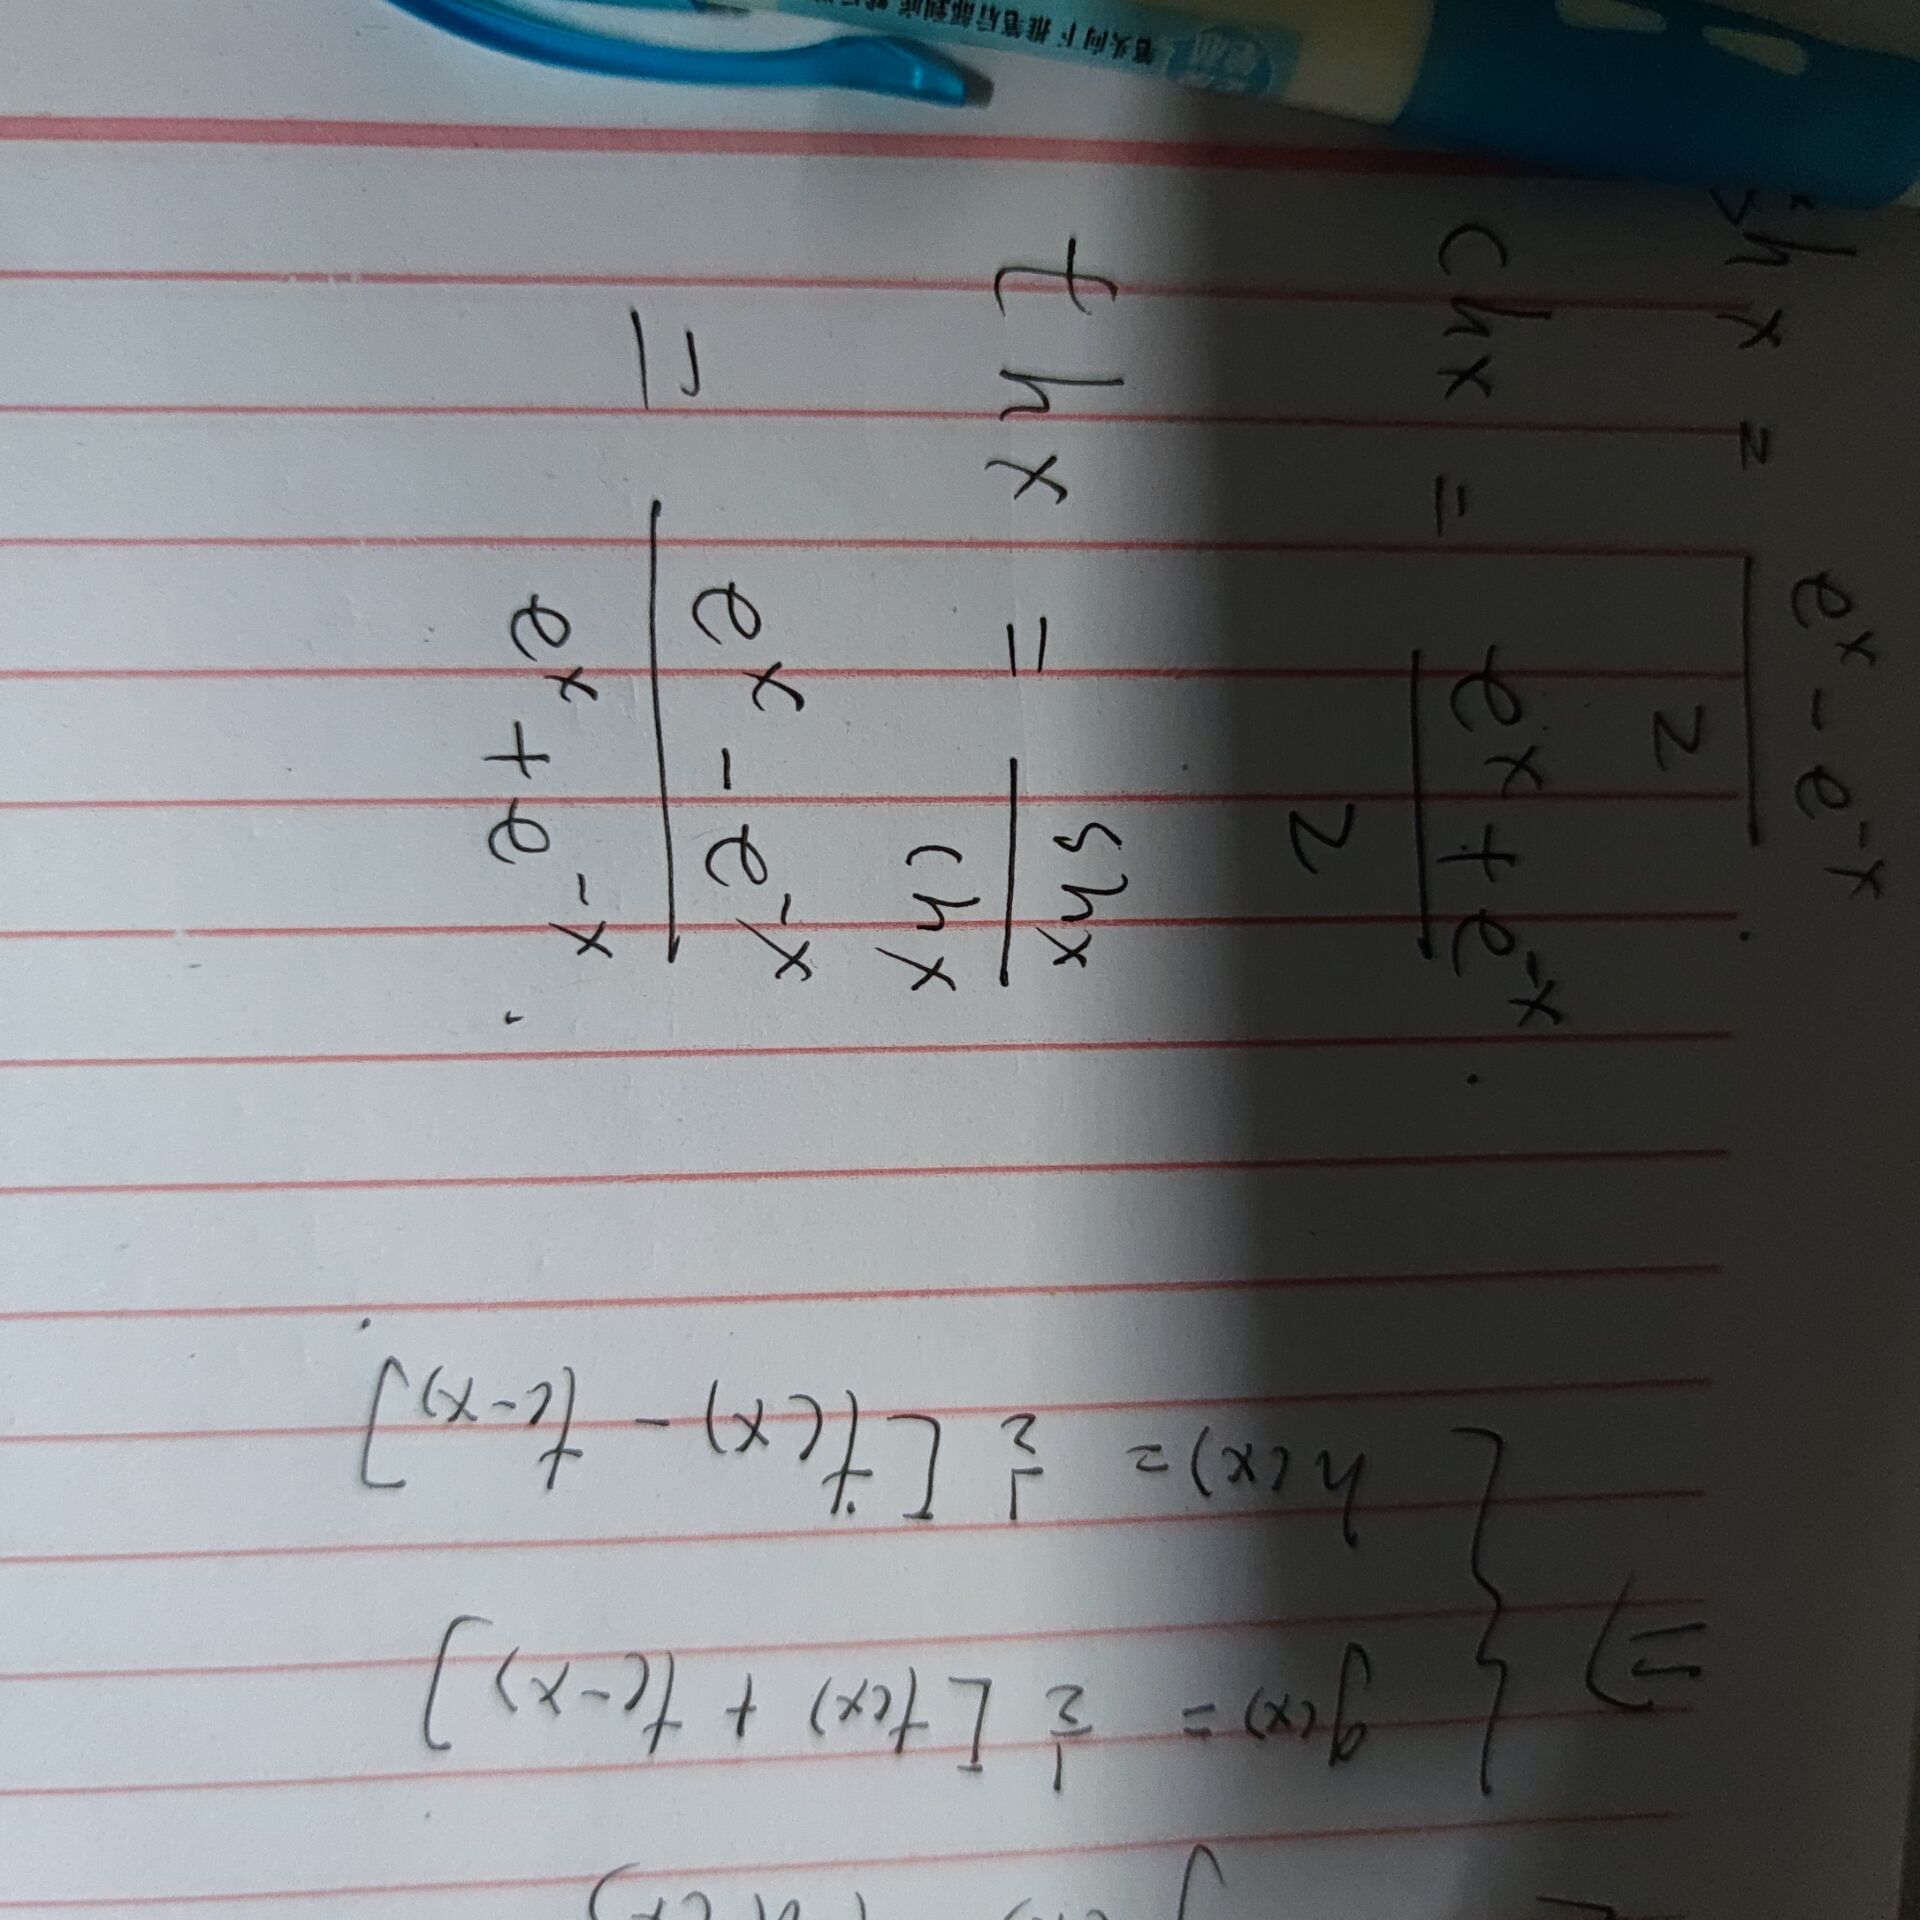 shx = \frac{e^x - e^{-x}}{2}.
chx = \frac{e^x + e^{-x}}{2}.
thx = \frac{shx}{chx}
= \frac{e^x - e^{-x}}{e^x + e^{-x}}.
⇒ { g(x) = \frac{1}{2} [f(x) + f(-x)]
h(x) = \frac{1}{2} [f(x) - f(-x)].
笔头向下 推笔后部到底